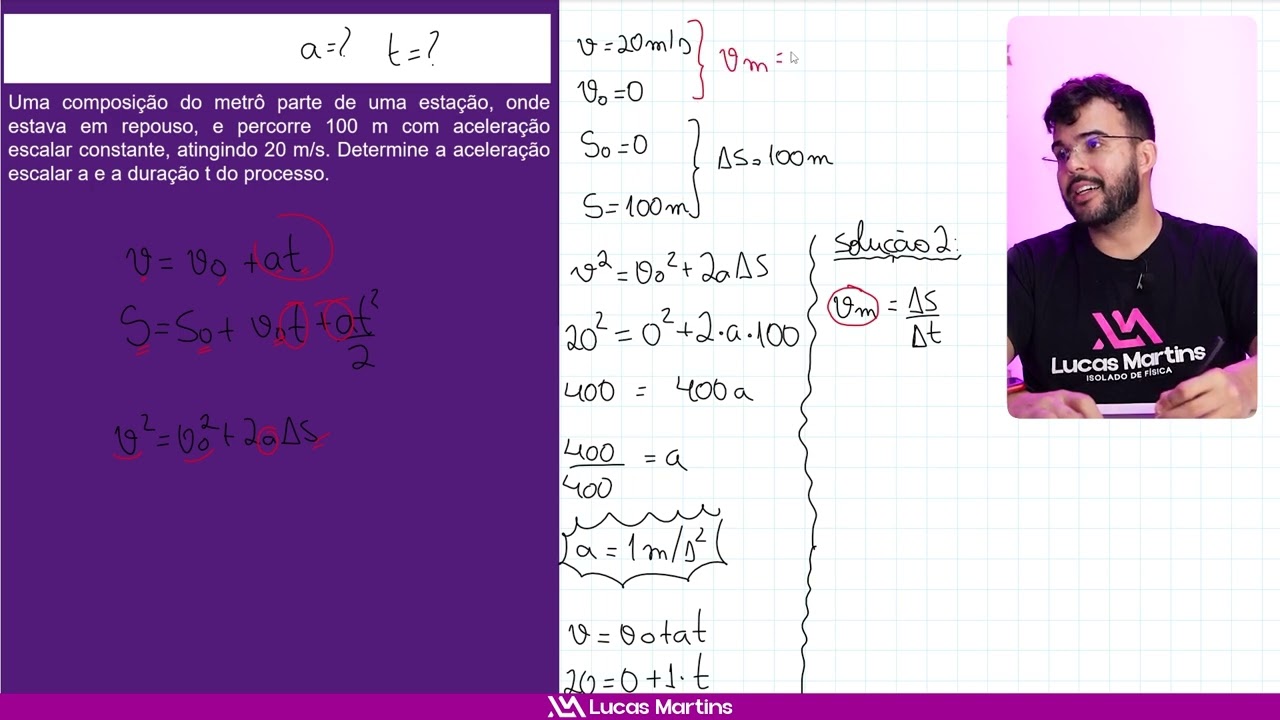 a=? t=?
Uma composição do metrô parte de uma estação, onde
estava em repouso, e percorre 100 m com aceleração
escalar constante, atingindo 20 m/s. Determine a aceleração
escalar a e a duração t do processo.
v = v₀ + at
S = S₀ + v₀t + at²/2
v² = v₀² + 2aΔS
v = 20 m/s
v₀ = 0
vm =
S₀ = 0
S = 100 m
ΔS = 100 m
v² = v₀² + 2aΔS
20² = 0² + 2·a·100
400 = 400a
400/400 = a
a = 1 m/s²
v = v₀ + at
20 = 0 + 1·t
Solução 2:
vm = ΔS/Δt
Lucas Martins
ISOLADO DE FÍSICA
Lucas Martins